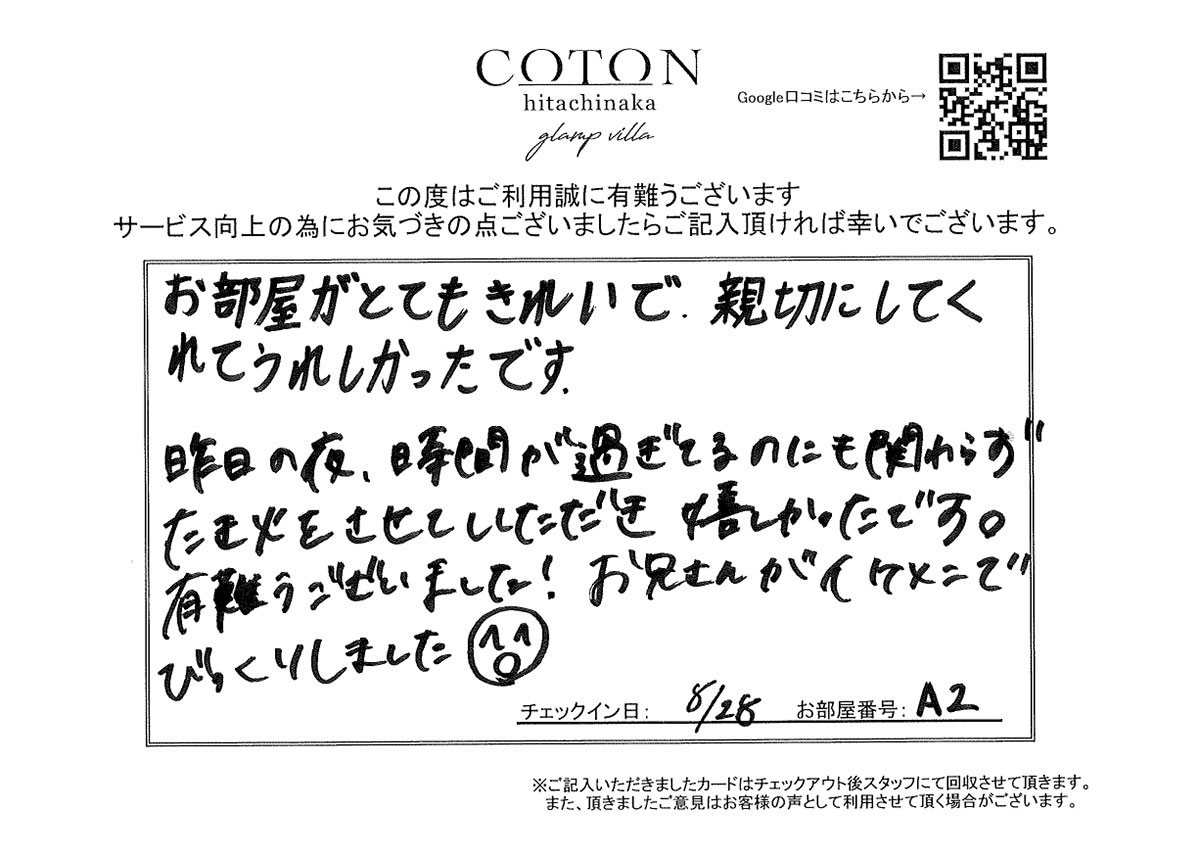 COTON
hitachinaka
glamp villa
Google口コミはこちらから→
この度はご利用誠に有難うございます
サービス向上の為にお気づきの点ございましたらご記入頂ければ幸いでございます。
お部屋がとてもきれいで、親切にしてく
れてうれしかったです。
昨日の夜、時間が過ぎてるのにも関わらず
たき火をさせていただき 嬉しかったです。
有難うございました! お兄さんがイケメンで
びっくりしました
チェックイン日: 8/28 お部屋番号: A2
※ご記入いただきましたカードはチェックアウト後スタッフにて回収させて頂きます。
また、頂きましたご意見はお客様の声として利用させて頂く場合がございます。